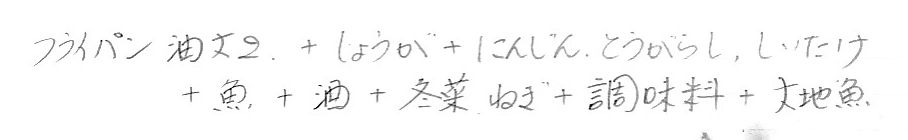 フライパン 油大2. + しょうが + にんじん. とうがらし, しいたけ
+ 魚. + 酒 + 冬菜 ねぎ + 調味料 + 大地魚